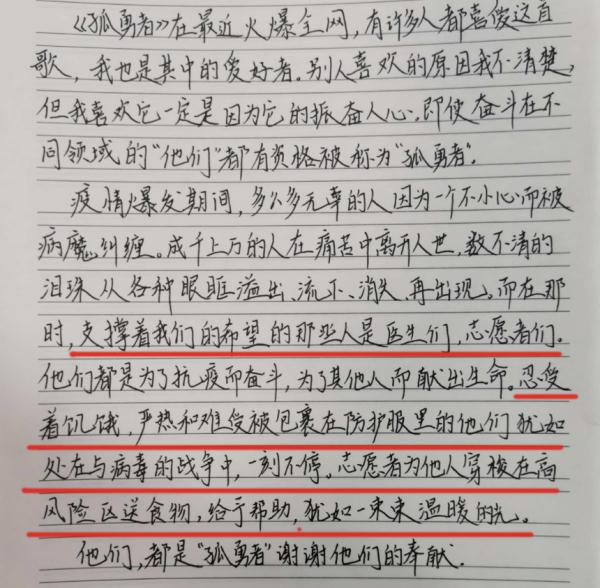 《孤勇者》在最近火爆全网，有许多人都喜爱这首
歌，我也是其中的爱好者。别人喜欢的原因我不清楚，
但我喜欢它一定是因为它的振奋人心，即使奋斗在不
同领域的“他们”都有资格被称为“孤勇者”。
疫情爆发期间，多少多无辜的人因为一个不小心而被
病魔纠缠。成千上万的人在痛苦中离开人世，数不清的
泪珠从各种眼眶溢出、流下、消失、再出现。而在那
时，支撑着我们的希望的那些人是医生们，志愿者们。
他们都是为了抗疫而奋斗，为了其他人而献出生命。忍受
着饥饿，严热和难受被包裹在防护服里的他们犹如
处在与病毒的战争中，一刻不停。志愿者为他人穿梭在高
风险区送食物，给予帮助，犹如一束束温暖的光。
他们，都是“孤勇者”谢谢他们的奉献．